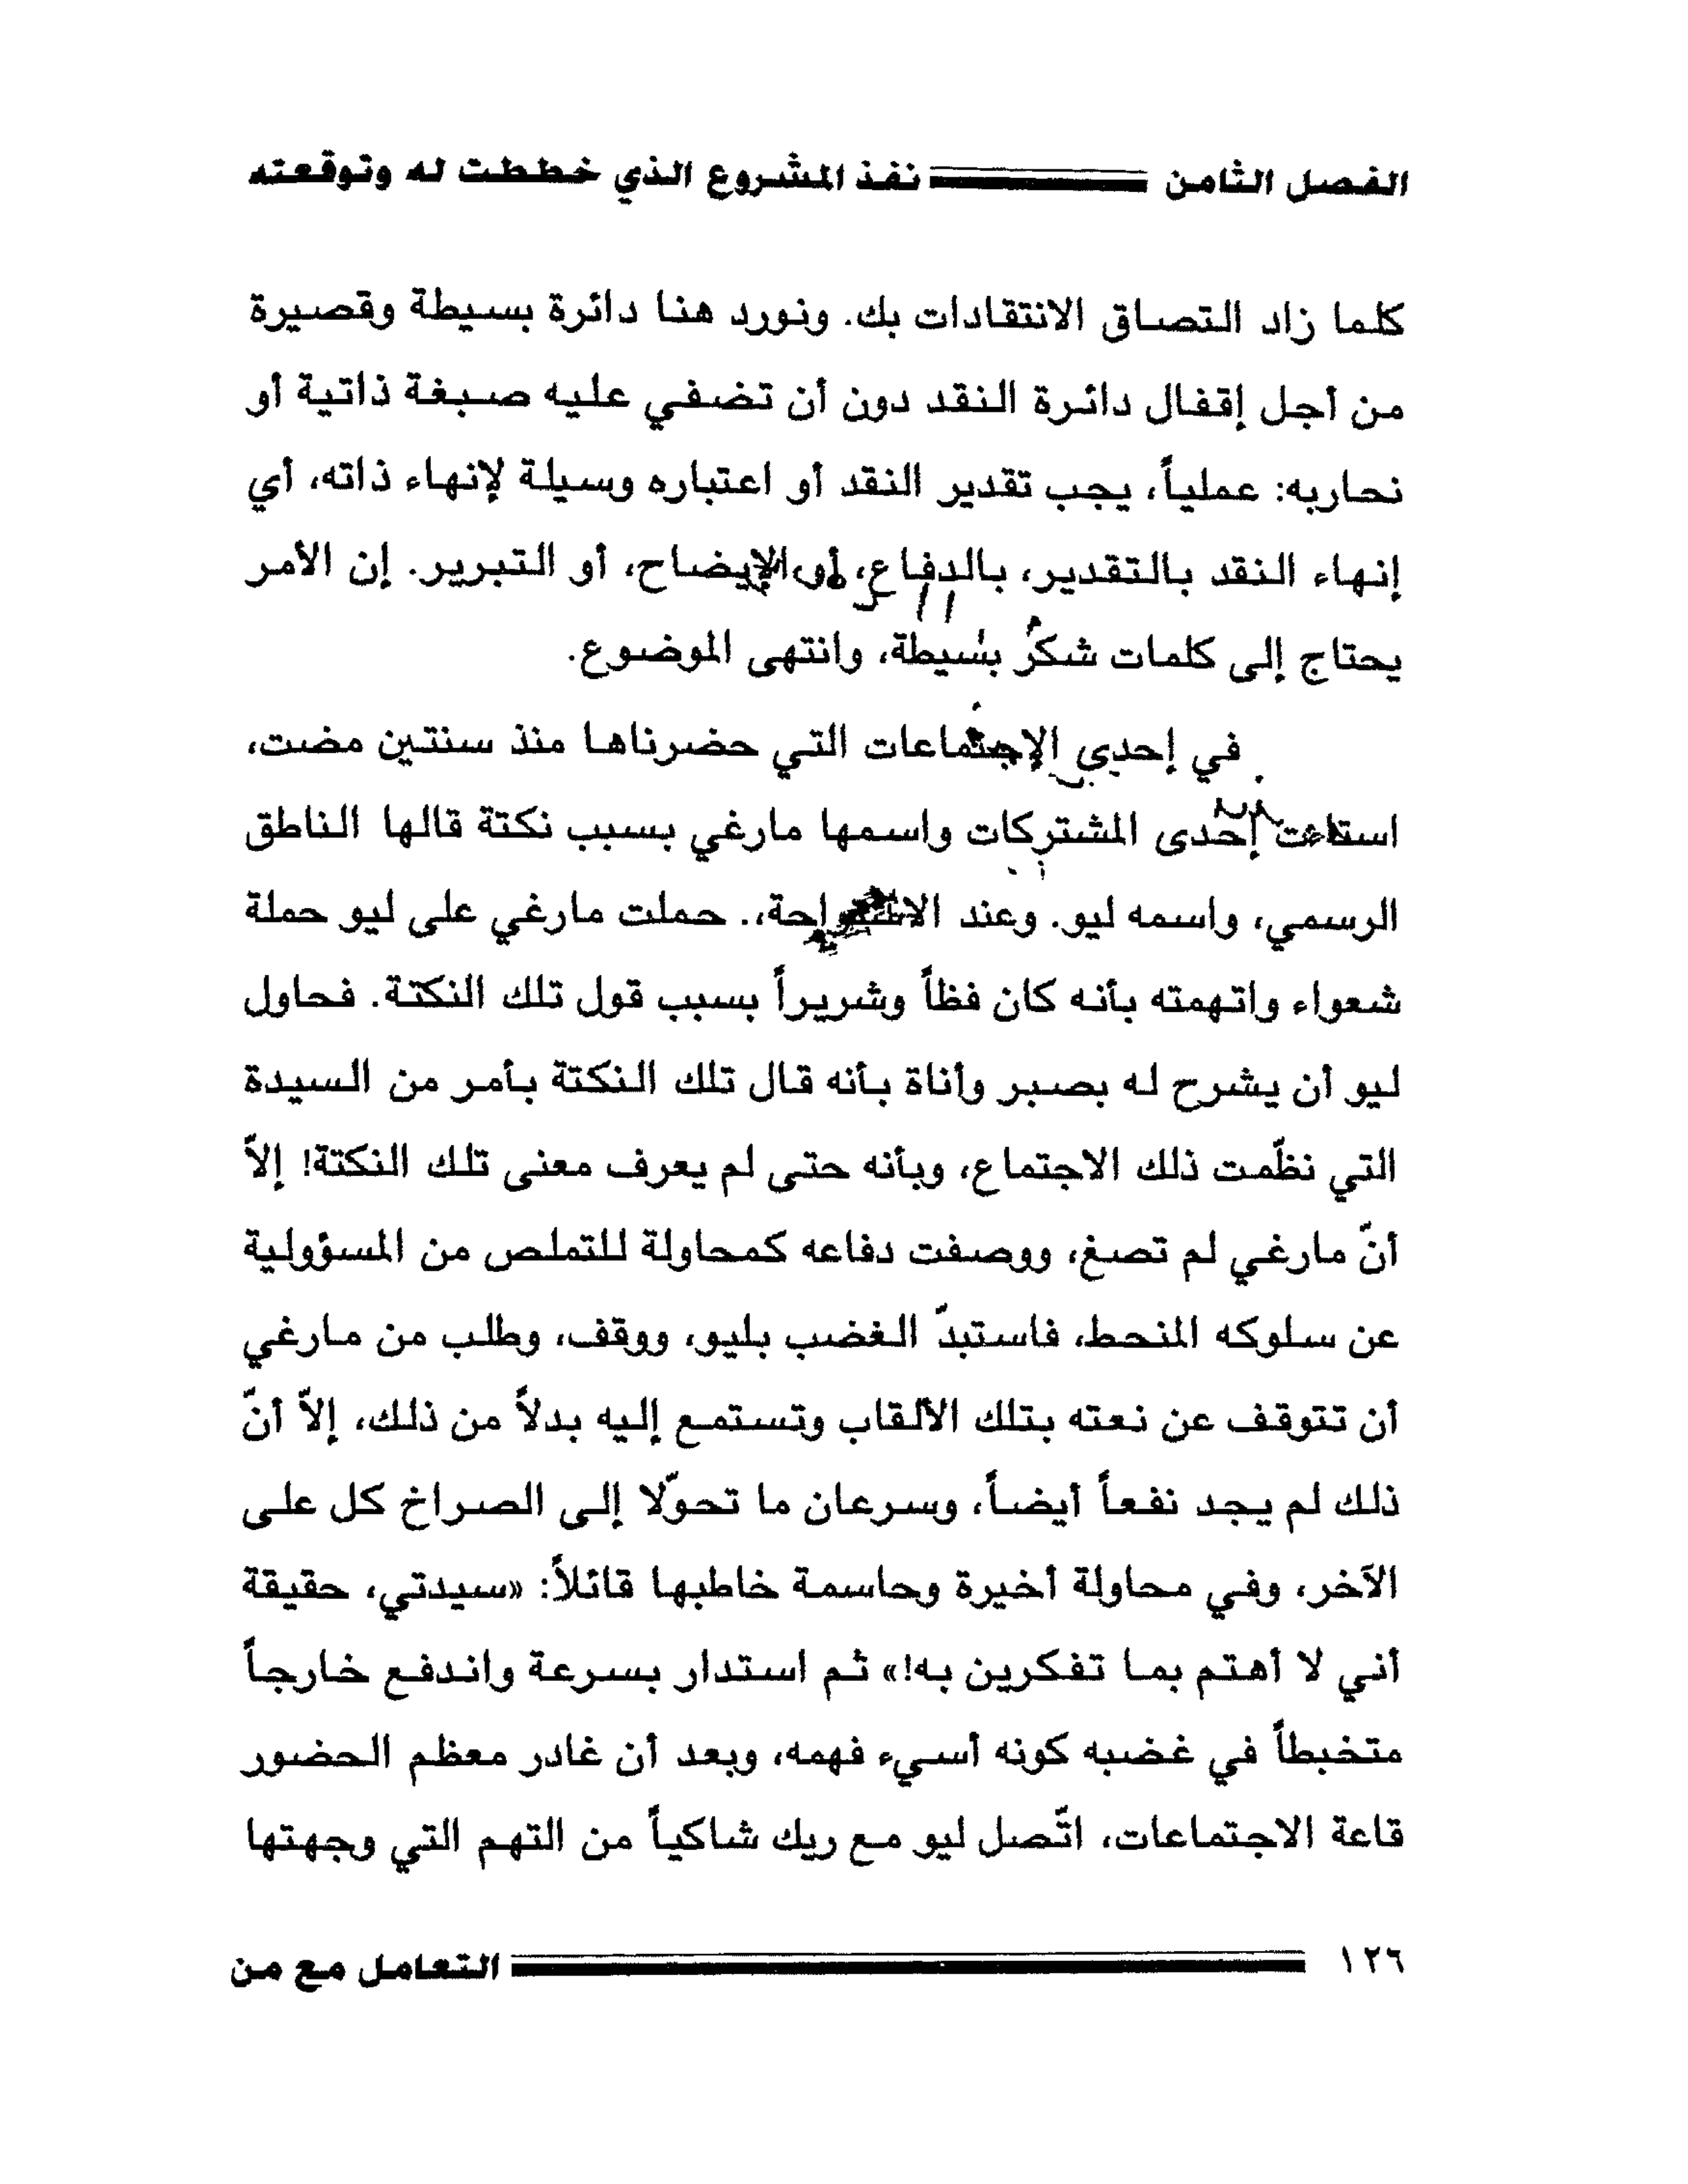 الفصل الثامن نفذ المشروع الذي خططت له وتوقعته
كلما زاد التصاق الانتقادات بك. ونورد هنا دائرة بسيطة وقصيرة
من أجل إقفال دائرة النقد دون أن تضفي عليه صبغة ذاتية أو
نحاربه: عملياً، يجب تقدير النقد أو اعتباره وسيلة لإنهاء ذاته، أي
إنهاء النقد بالتقدير، بالدفاع، أو الإيضاح، أو التبرير. إن الأمر
يحتاج إلى كلمات شكر بسيطة، وانتهى الموضوع.
في إحدى الإجتماعات التي حضرناها منذ سنتين مضت،
استاءت إحدى المشتركات واسمها مارغي بسبب نكتة قالها الناطق
الرسمي، واسمه ليو. وعند الاستراحة،. حملت مارغي على ليو حملة
شعواء واتهمته بأنه كان فظاً وشريراً بسبب قول تلك النكتة. فحاول
ليو أن يشرح له بصبر وأناة بأنه قال تلك النكتة بأمر من السيدة
التي نظّمت ذلك الاجتماع، وبأنه حتى لم يعرف معنى تلك النكتة! إلاّ
أنّ مارغي لم تصغ، ووصفت دفاعه كمحاولة للتملص من المسؤولية
عن سلوكه المنحط، فاستبدّ الغضب بليو، ووقف، وطلب من مارغي
أن تتوقف عن نعته بتلك الألقاب وتستمع إليه بدلاً من ذلك، إلاّ أنّ
ذلك لم يجد نفعاً أيضاً، وسرعان ما تحوّلا إلى الصراخ كل على
الآخر، وفي محاولة أخيرة وحاسمة خاطبها قائلاً: «سيدتي، حقيقة
أني لا أهتم بما تفكرين به!» ثم استدار بسرعة واندفع خارجاً
متخبطاً في غضبه كونه أسيء فهمه، وبعد أن غادر معظم الحضور
قاعة الاجتماعات، اتّصل ليو مع ريك شاكياً من التهم التي وجهتها
١٢٦ التعامل مع من